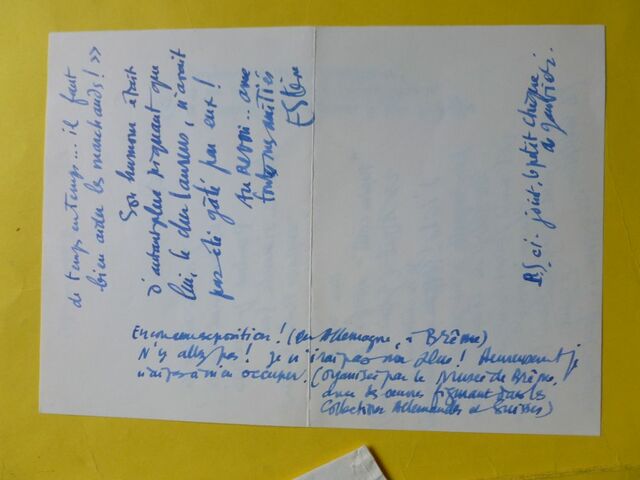 de temps en temps... il faut
bien aider les marchands! »
Son humour était
d'autant plus poignant que
lui, le cher Laurens, n'avait
pas été gâté par eux!
Au Revoir.. avec
toutes mes amitiés
Estève
P.S ci-joint, le petit chèque
Encore une exposition! (en Allemagne, à Brême)
N'y allez pas! Je n'irai pas non plus! Heureusement je
n'ai pas à m'en occuper. (organisée par le Musée de Brême
avec les œuvres figurant dans les
Collections Allemandes et Suisses)